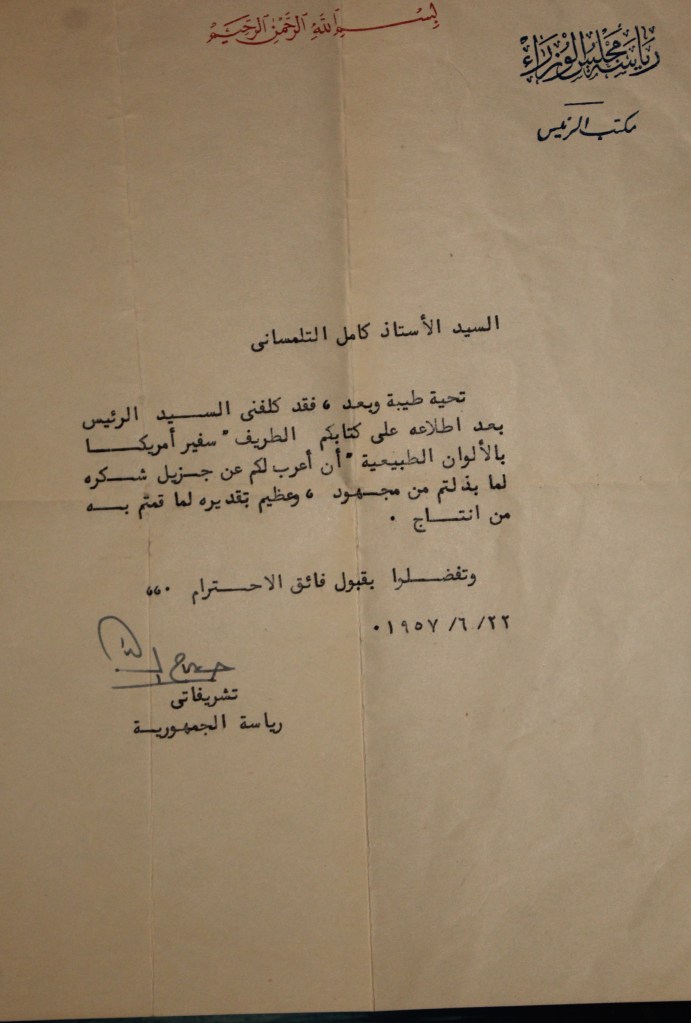 بسم الله الرحمن الرحيم
رياسة مجلس الوزراء
مكتب الرئيس
السيد الأستاذ كامل التلمسانى
تحية طيبة وبعد ، فقد كلفنى الســيد الرئيس
بعد اطلاعه على كتابكم الطريف " سفير أمريكــا
بالألوان الطبيعية " أن أعرب لكم عن جــزيل شــكره
لما بذلتم من مجـهـود ، وعظيم تقديره لما قمتم بــه
من انتــاج .
وتفضــلوا بقبول فائق الاحــترام .،،
٢٢/ ٦/ ١٩٥٧.
تشريفاتى
رياسة الجمهوريــة